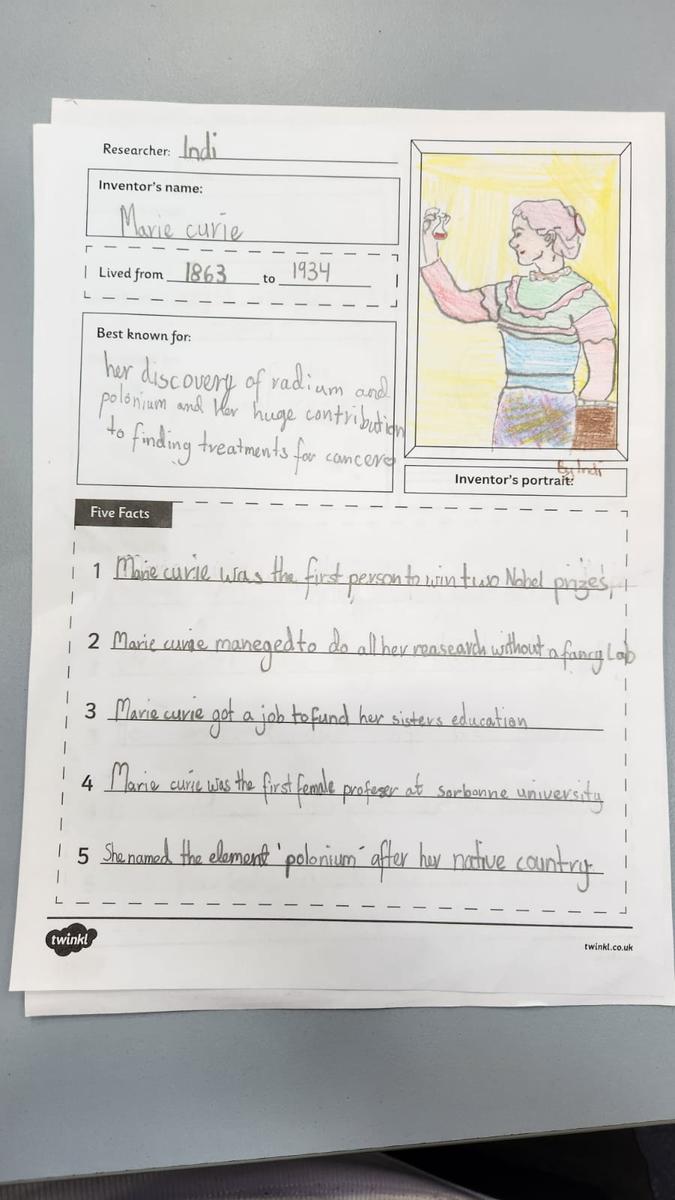 Researcher: Indi
Inventor's name:
Marie curie
Lived from 1863 to 1934
Best known for:
her discovery of radium and
polonium and her huge contribution
to finding treatments for cancer
By Indi
Inventor's portrait:
Five Facts
1 Marie curie was the first person to win two Nobel prizes,
2 Marie curie maneged to do all her reasearch without a fancy Lab
3 Marie curie got a job to fund her sisters education
4 Marie curie was the first female profeser at sorbonne university
5 She named the element 'polonium' after her native country.
twinkl
twinkl.co.uk